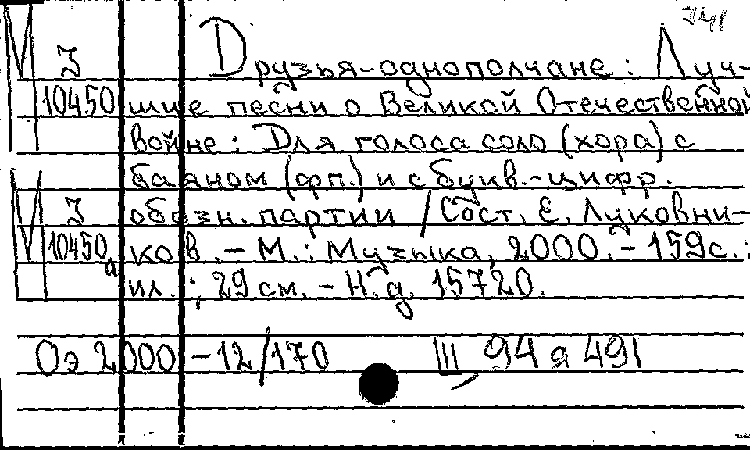 Друзья-однополчане: Луч-
10450 шие песни о Великой Отечественной
войне: Для голоса соло (хора) с
баяном (фп.) и с букв.-цифр.
обозн. партии / Сост. Е. Луковни-
10450а ков. - М.: Музыка, 2000. - 159с.:
ил.; 29 см. - Н.д. 15720.
Оэ 2000 - 12/170 III 94 а 491